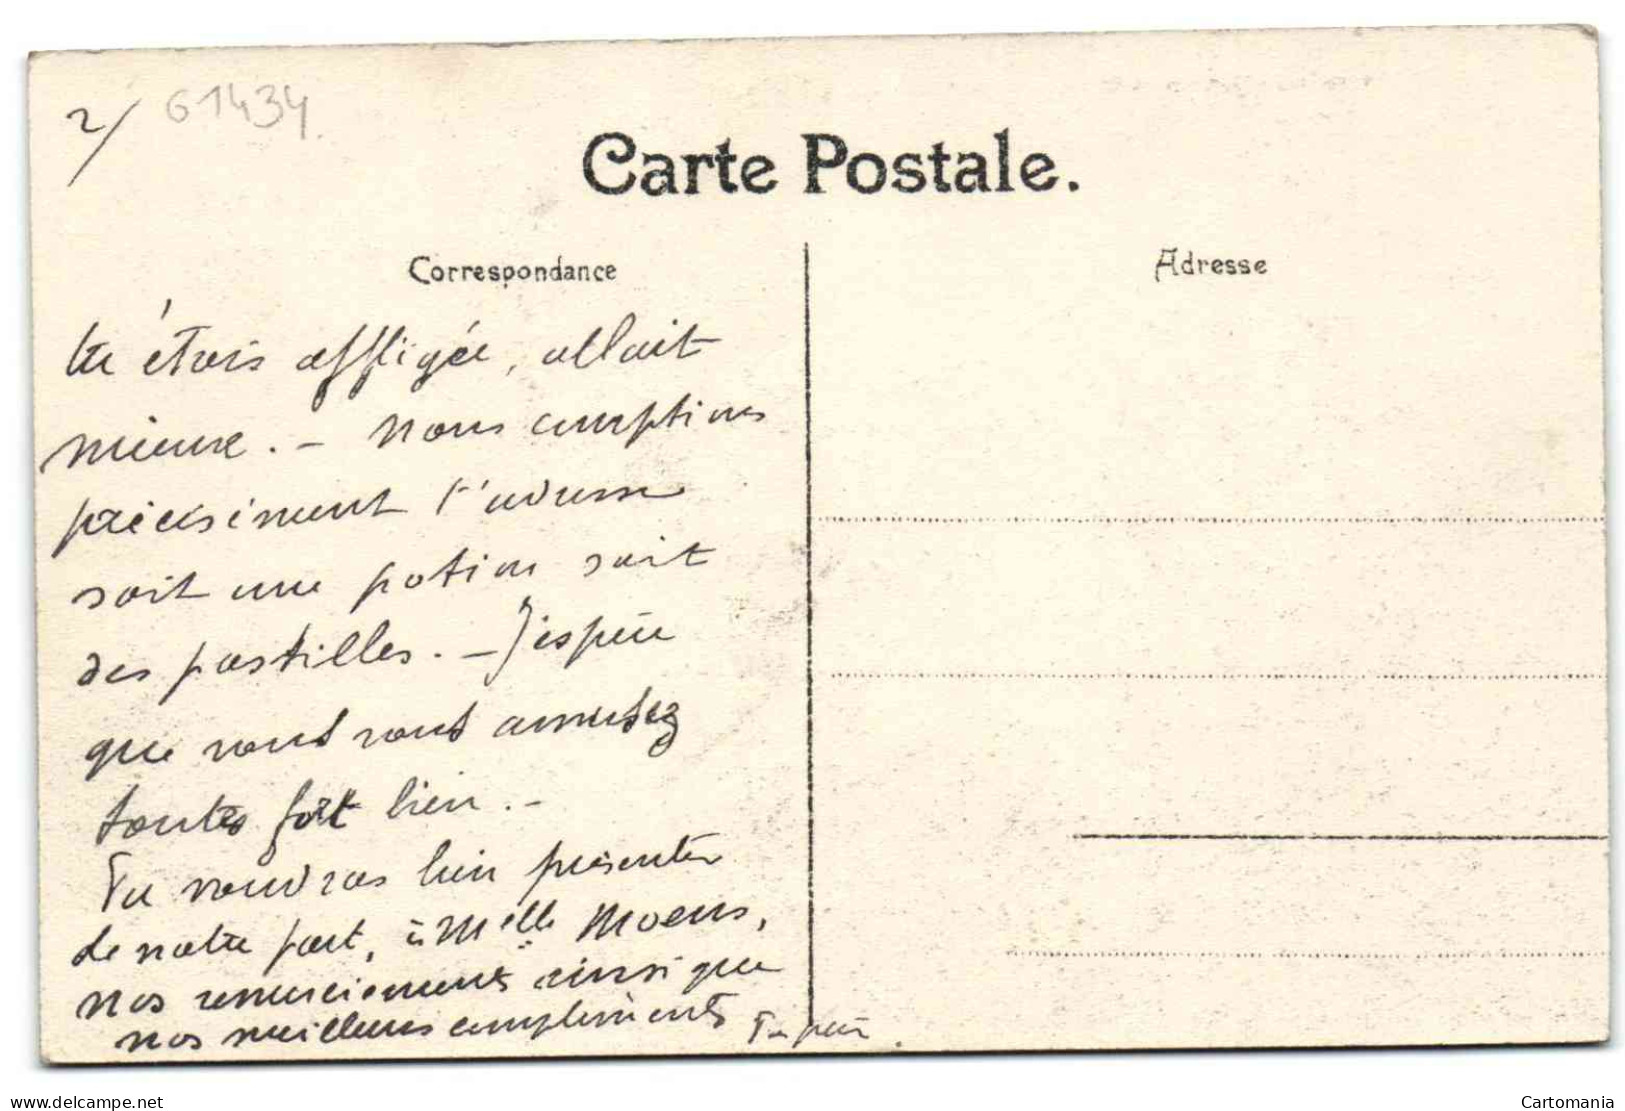 2/ 61434.
Carte Postale.
Correspondance
Adresse
tu étais affligée, allait
mieux. - Nous comptions
précisément t'adresser
soit une potion soit
des pastilles. - J'espère
que vous vous amusez
toutes fort bien. -
Tu voudras bien présenter
de notre part, à Melle Moens,
nos remerciements ainsi que
nos meilleurs compliments Ton père.
www.delcampe.net
Cartomania